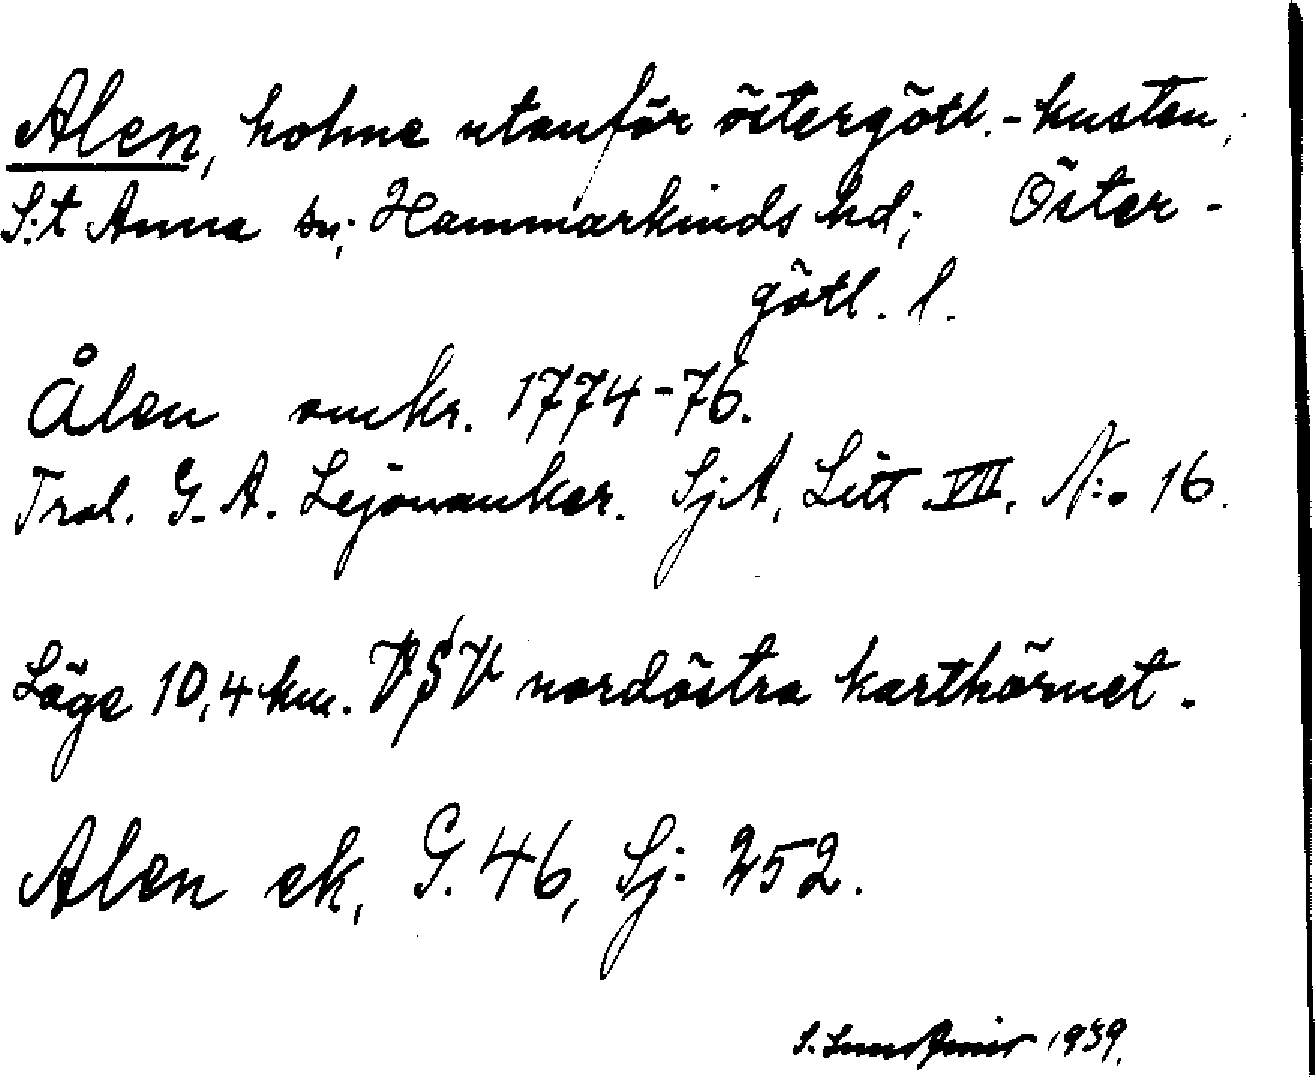 Alen, holme utanför östergötl.-kusten,
S:t Anna sn; Hammarkinds hd; Öster-
götl. l.
Ålen omkr. 1774-76.
Trol. G. A. Lejonankar. SjA, Litt VII. N:o 16.
Läge 10,4 km. VSV nordöstra karthörnet.
Alen ek, G. 46, Sj: 252.
S. 1939.